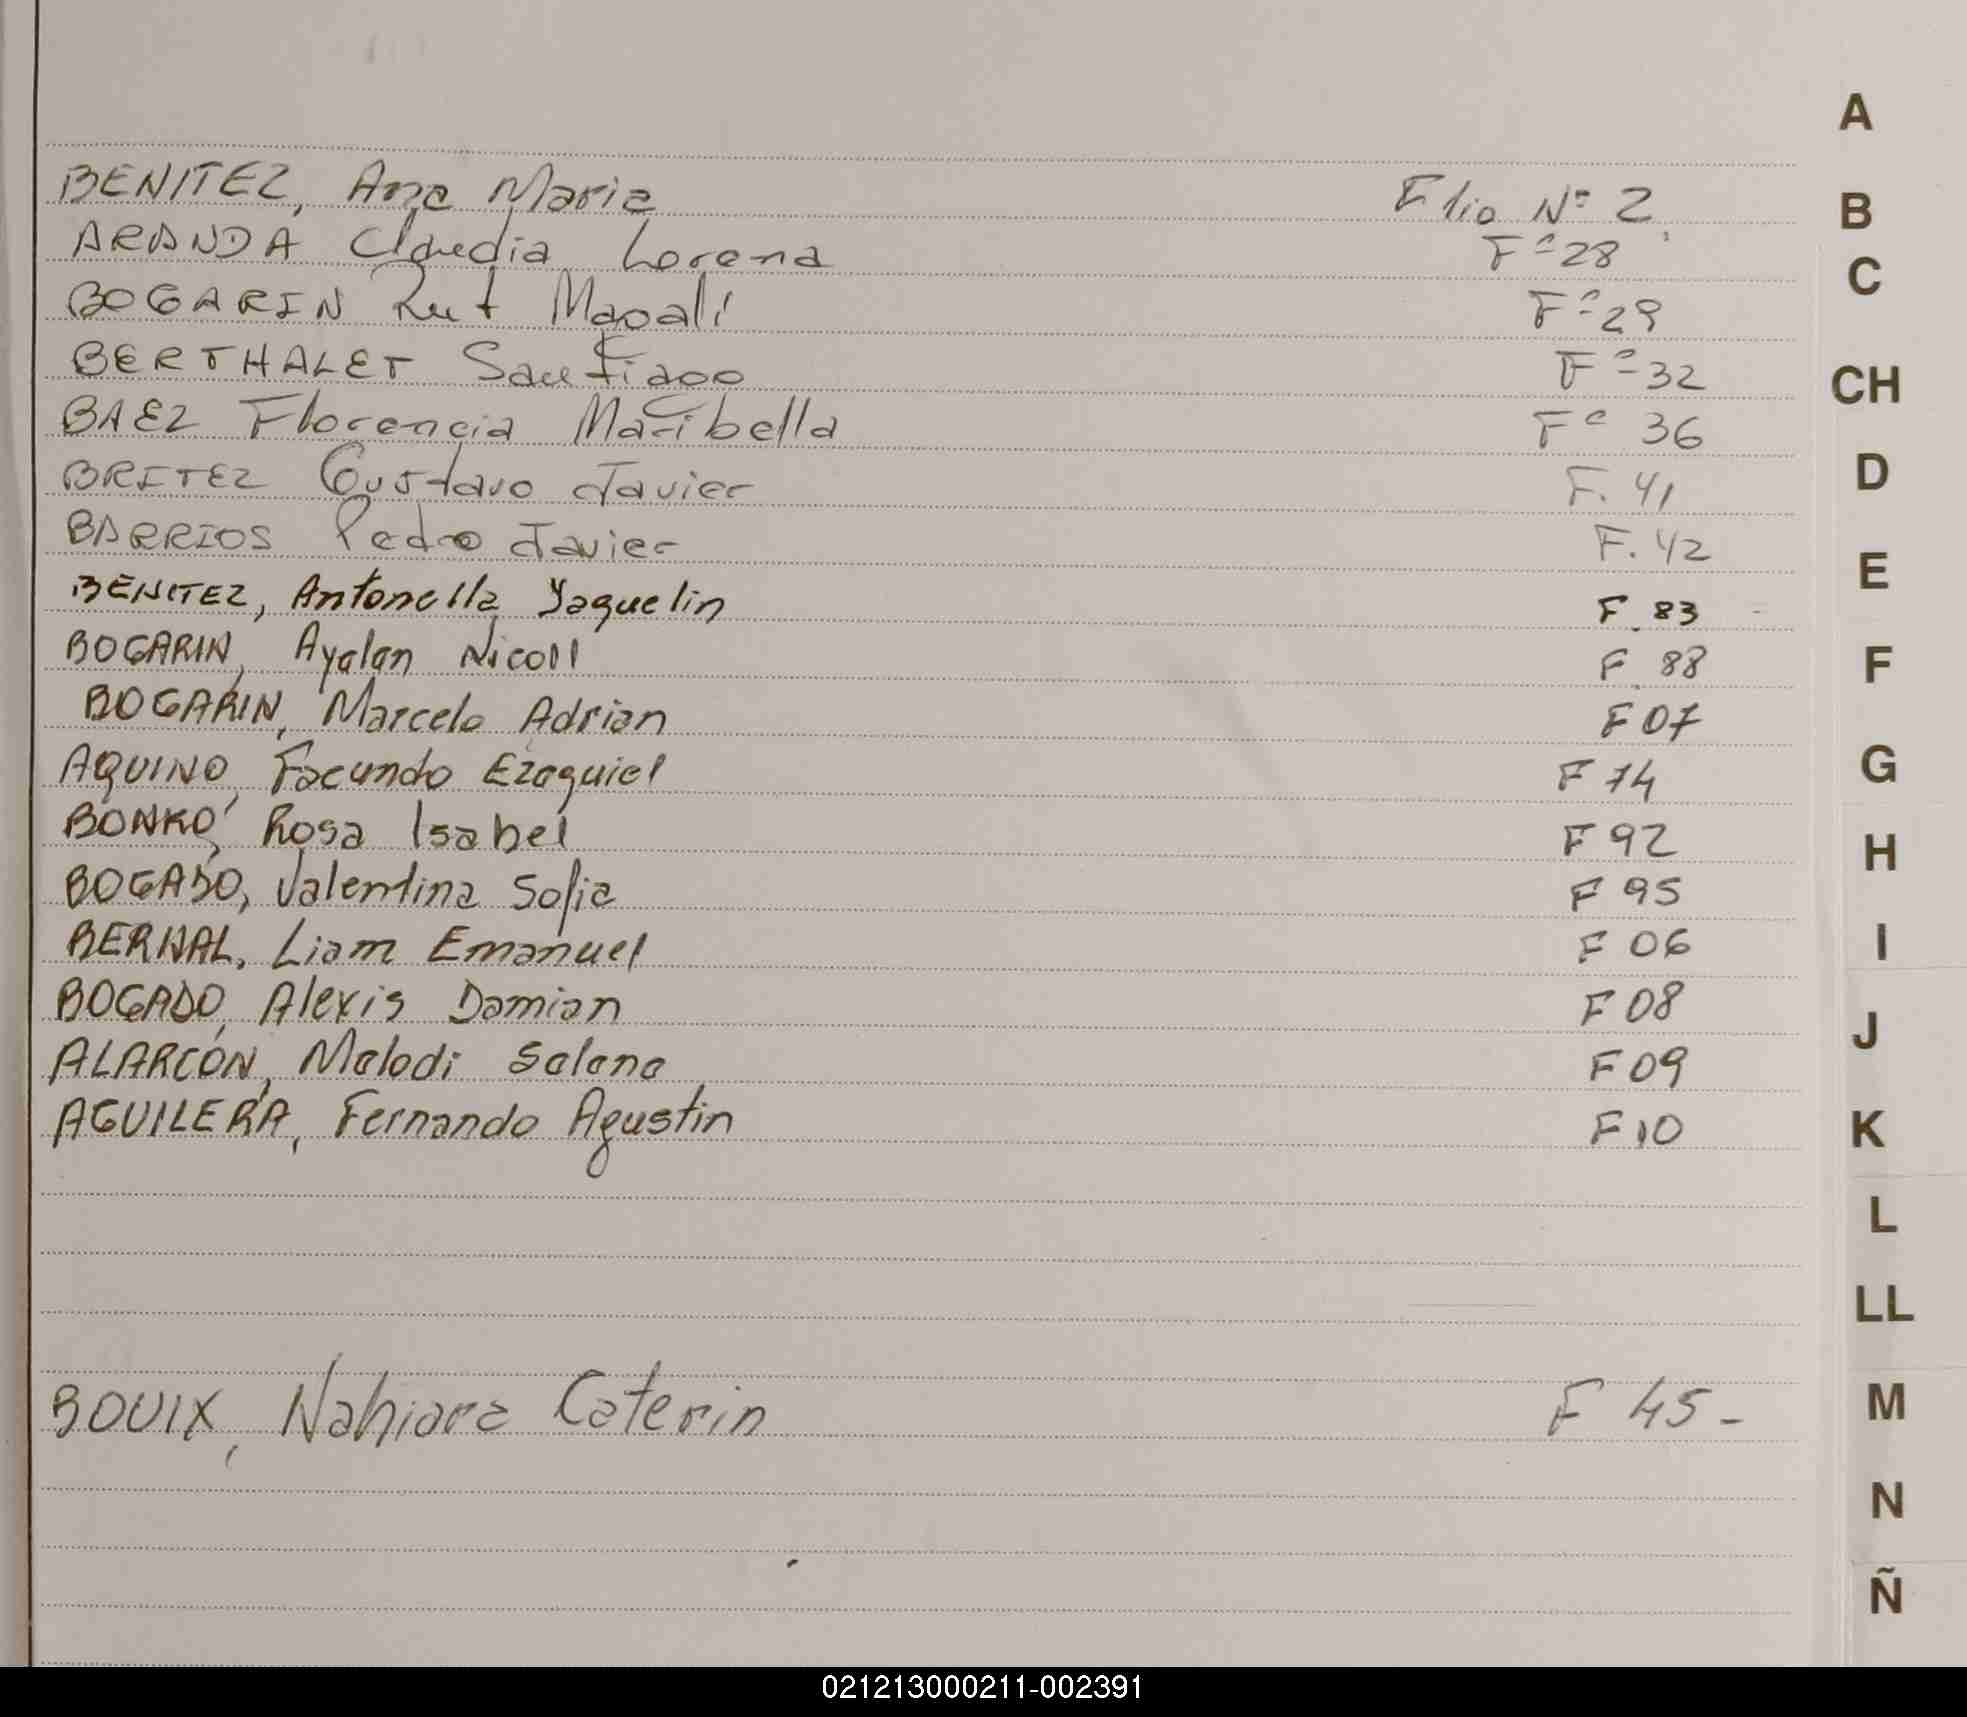 BENITEZ, Ana Maria Flio Nº 2
ARANDA Claudia Lorena Fº 28
BOGARIN Rut Magali Fº 29
BERTHALET Santiago Fº 32
BAEZ Florencia Maribella Fº 36
BRITEZ Gustavo Javier F. 41
BARRIOS Pedro Javier F. 42
BENITEZ, Antonella Yaquelin F. 83
BOGARIN, Ayalan Nicoll F. 88
BOGARIN, Marcelo Adrian F 07
AQUINO, Facundo Ezequiel F 74
BONKO, Rosa Isabel F 92
BOGADO, Valentina Sofia F 95
BERNAL, Liam Emanuel F 06
BOGADO, Alexis Damian F 08
ALARCÓN, Melodi Selena F 09
AGUILERA, Fernando Agustin F 10
BOUIX, Nahiara Caterin F 45-
A
B
C
CH
D
E
F
G
H
I
J
K
L
LL
M
N
Ñ
021213000211-002391